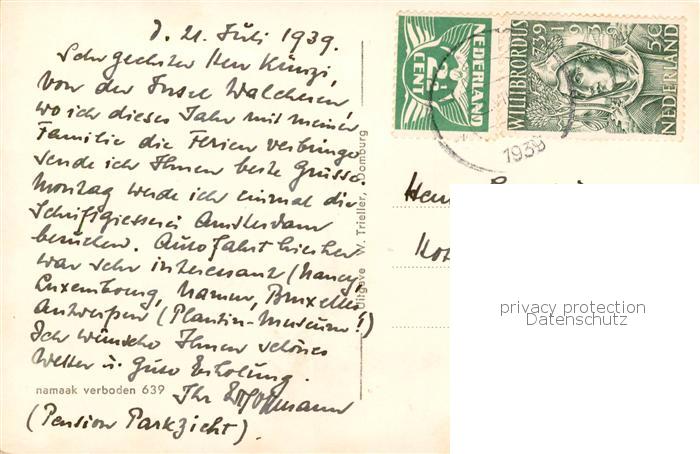 D. 21. Juli 1939.
Sehr geehrter Herr Künzi,
von der Insel Walcheren,
wo ich dieses Jahr mit meiner
Familie die Ferien verbringe
sende ich Ihnen beste Grüsse.
Montag werde ich einmal die
Schriftgiesserei Amsterdam
besuchen. Autofahrt hierher
war sehr interessant (Nancy,
Luxembourg, Namur, Bruxelles,
Antwerpen (Plantin-Museum!)
Ich wünsche Ihnen schönes
Wetter u. gute Erholung.
Ihr
(Pension Parkzicht).
namaak verboden 639
Uitgave W. Trieller, Domburg
NEDERLAND
2½
CENT
WILLIBRORDUS
739 1939
5C
NEDERLAND
1939
privacy protection
Datenschutz